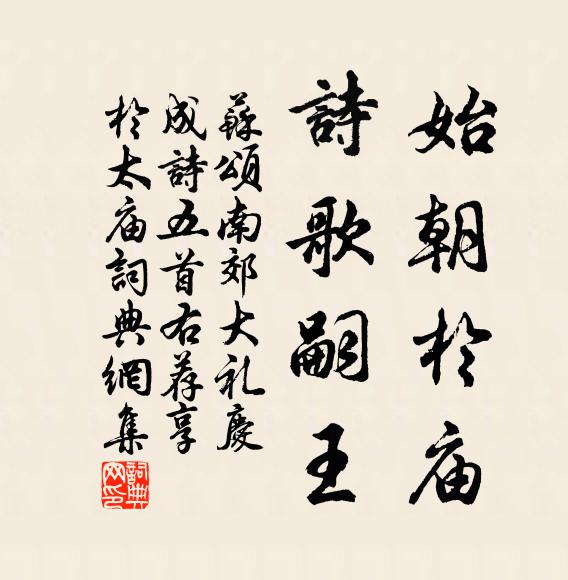 始朝於庙
詩歌嗣王
蘇頌南郊大礼慶
成詩五首右荐享
於太庙詞典網集
詞典网印